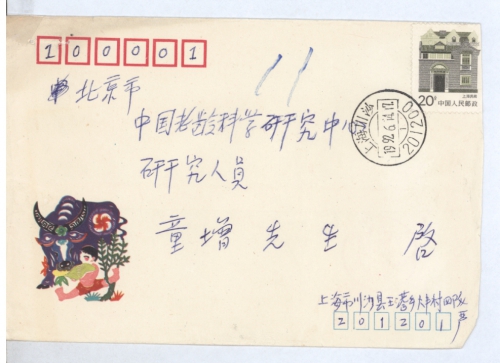 100001
北京市
中国老龄科学研究中心
研究人员
童增 先生 启
上海市川沙县王港乡
201201
20分 中国人民邮政
上海民居
上海川沙
1992.6.14.12
201200